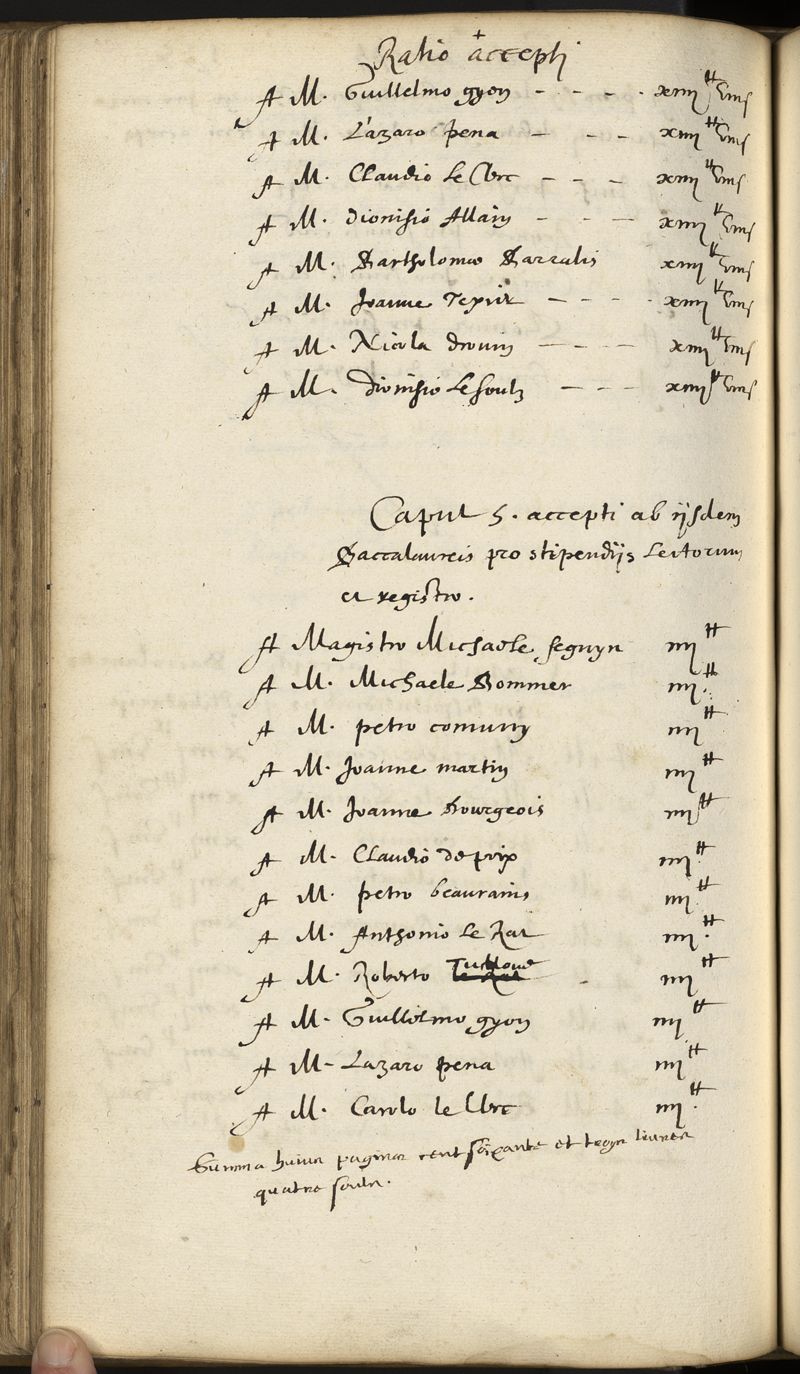 +
Ratio accepti
A M. Guillelmo gyon - - - - xiiij ₶ viij s
A M. Lazaro pena - - - xiiij ₶ viij s
A M. Claudio le Clerc - - - xiiij ₶ viij s
A M. Dionisio Allain - - - xiiij ₶ viij s
A M. Bartholomeo Barralis xiiij ₶ viij s
A M. Joanne Texier - - - - xiiij ₶ viij s
A M. Nicola drouin - - - - xiiij ₶ viij s
A M. Dionisio le soulz - - - xiiij ₶ viij s
Caput 5. accepti ab iisdem
Baccalaureis pro stipendijs Lectorum
et registro.
A Magistro Michaele seguyn iiij ₶
A M. Michaele Sommer iiij ₶
A M. petro comuny iiij ₶
A M. Joanne martin iiij ₶
A M. Joanne Bourgeois iiij ₶
A M. Claudio de prix iiij ₶
A M. petro beaurains iiij ₶
A M. Anthonio le Rat iiij ₶
A M. Roberto iiij ₶
A M. Guillelmo gyon iiij ₶
A M. Lazaro pena iiij ₶
A M. Carolo le Clerc iiij ₶
Summa huius paginae cent soixante et troys liures
quatre soulz.